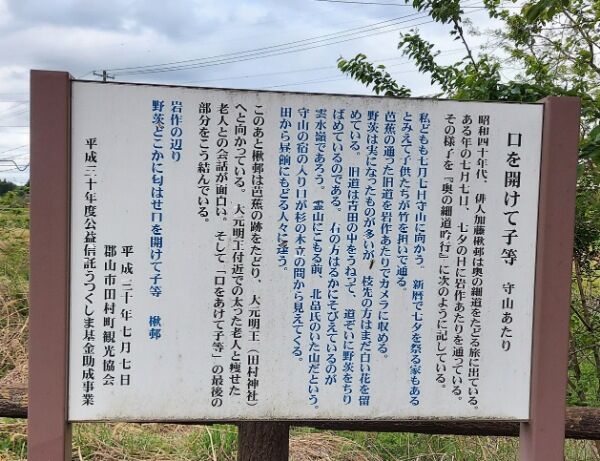 口を開けて子等　守山あたり
昭和四十年代、俳人加藤楸邨は奥の細道をたどる旅に出ている。
ある年の七月七日、七夕の日に岩作あたりを通っている。
その様子を『奥の細道吟行』に次のように記している。
私どもも七月七日守山に向かう。新暦で七夕を祭る家もある
とみえて子供たちが竹を担いで通る。
芭蕉の通った旧道を岩作あたりでカメラに収める。
野茨は実になったものが多いが、枝先の方はまだ白い花を留
めている。旧道は青田の中をうねって、道ぞいに野茨をちり
ばめているのである。右の方はるかにそびえているのが
雲水嶺であろう。霊山にこもる前、北畠氏のいた山だという。
守山の宿の入り口が杉の木立の間から見えてくる。
田から昼餉にもどる人々に逢う。
このあと楸邨は芭蕉の跡をたどり、大元明王（田村神社）
へと向かっている。大元明王付近での太った老人と痩せた
老人との会話が面白い。そして「口をあけて子等」の最後の
部分をこう結んでいる。
岩作の辺り
野茨どこかに匂はせ口を開けて子等　楸邨
平成三十年七月七日
郡山市田村町観光協会
平成三十年度公益信託うつくしま基金助成事業